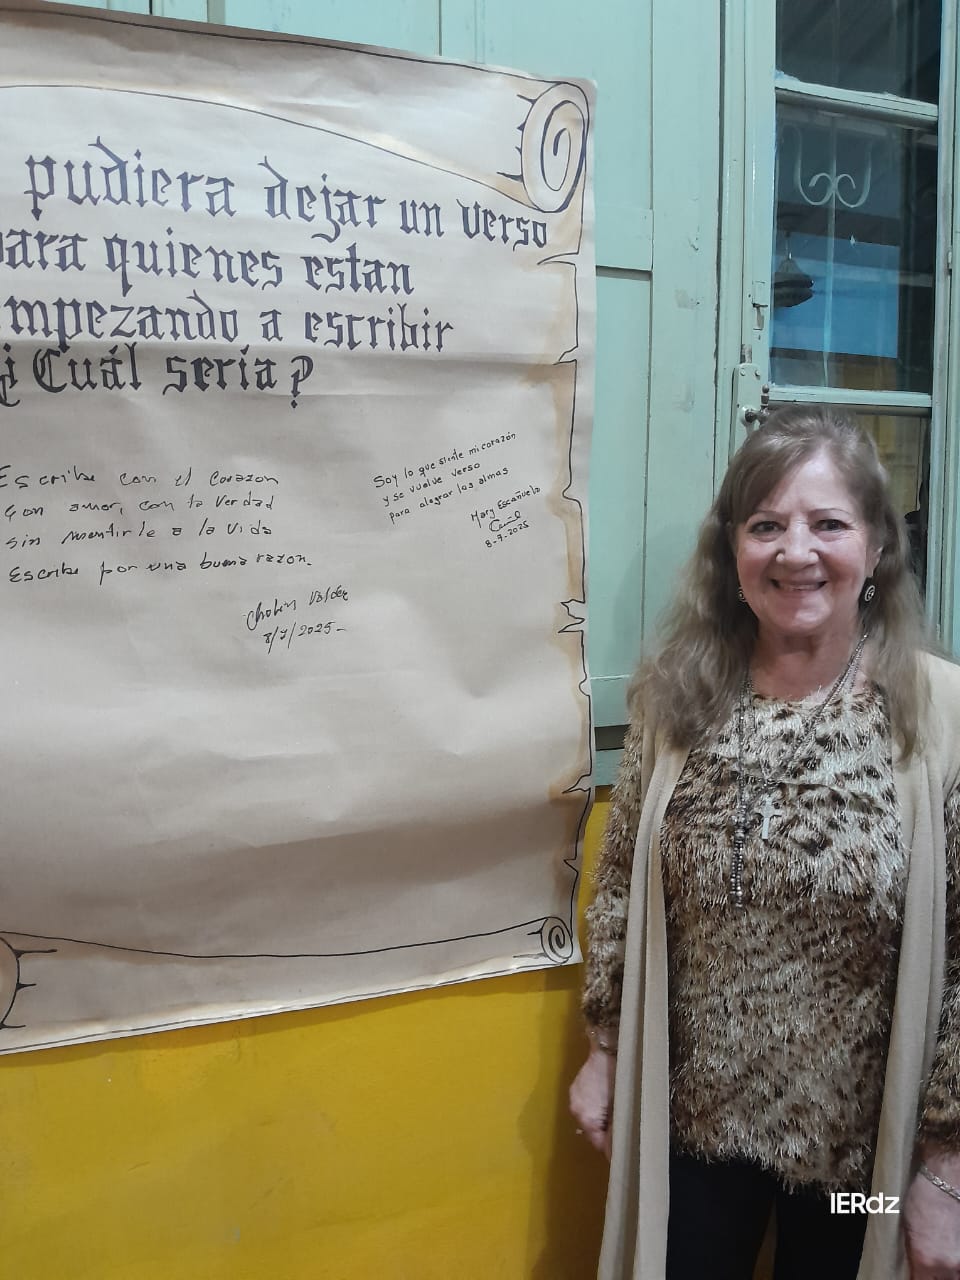 pudiera dejar un verso
para quienes estan
empezando a escribir
¿Cuál sería?
Escribe con el corazon
con amor, con la verdad
sin mentirle a la vida
Escribe por una buena razon.
8/7/2025-
Soy lo que siente mi corazón
y se vuelve verso
para alegrar las almas
Mary Escañuela
8-7-2025
IERdz